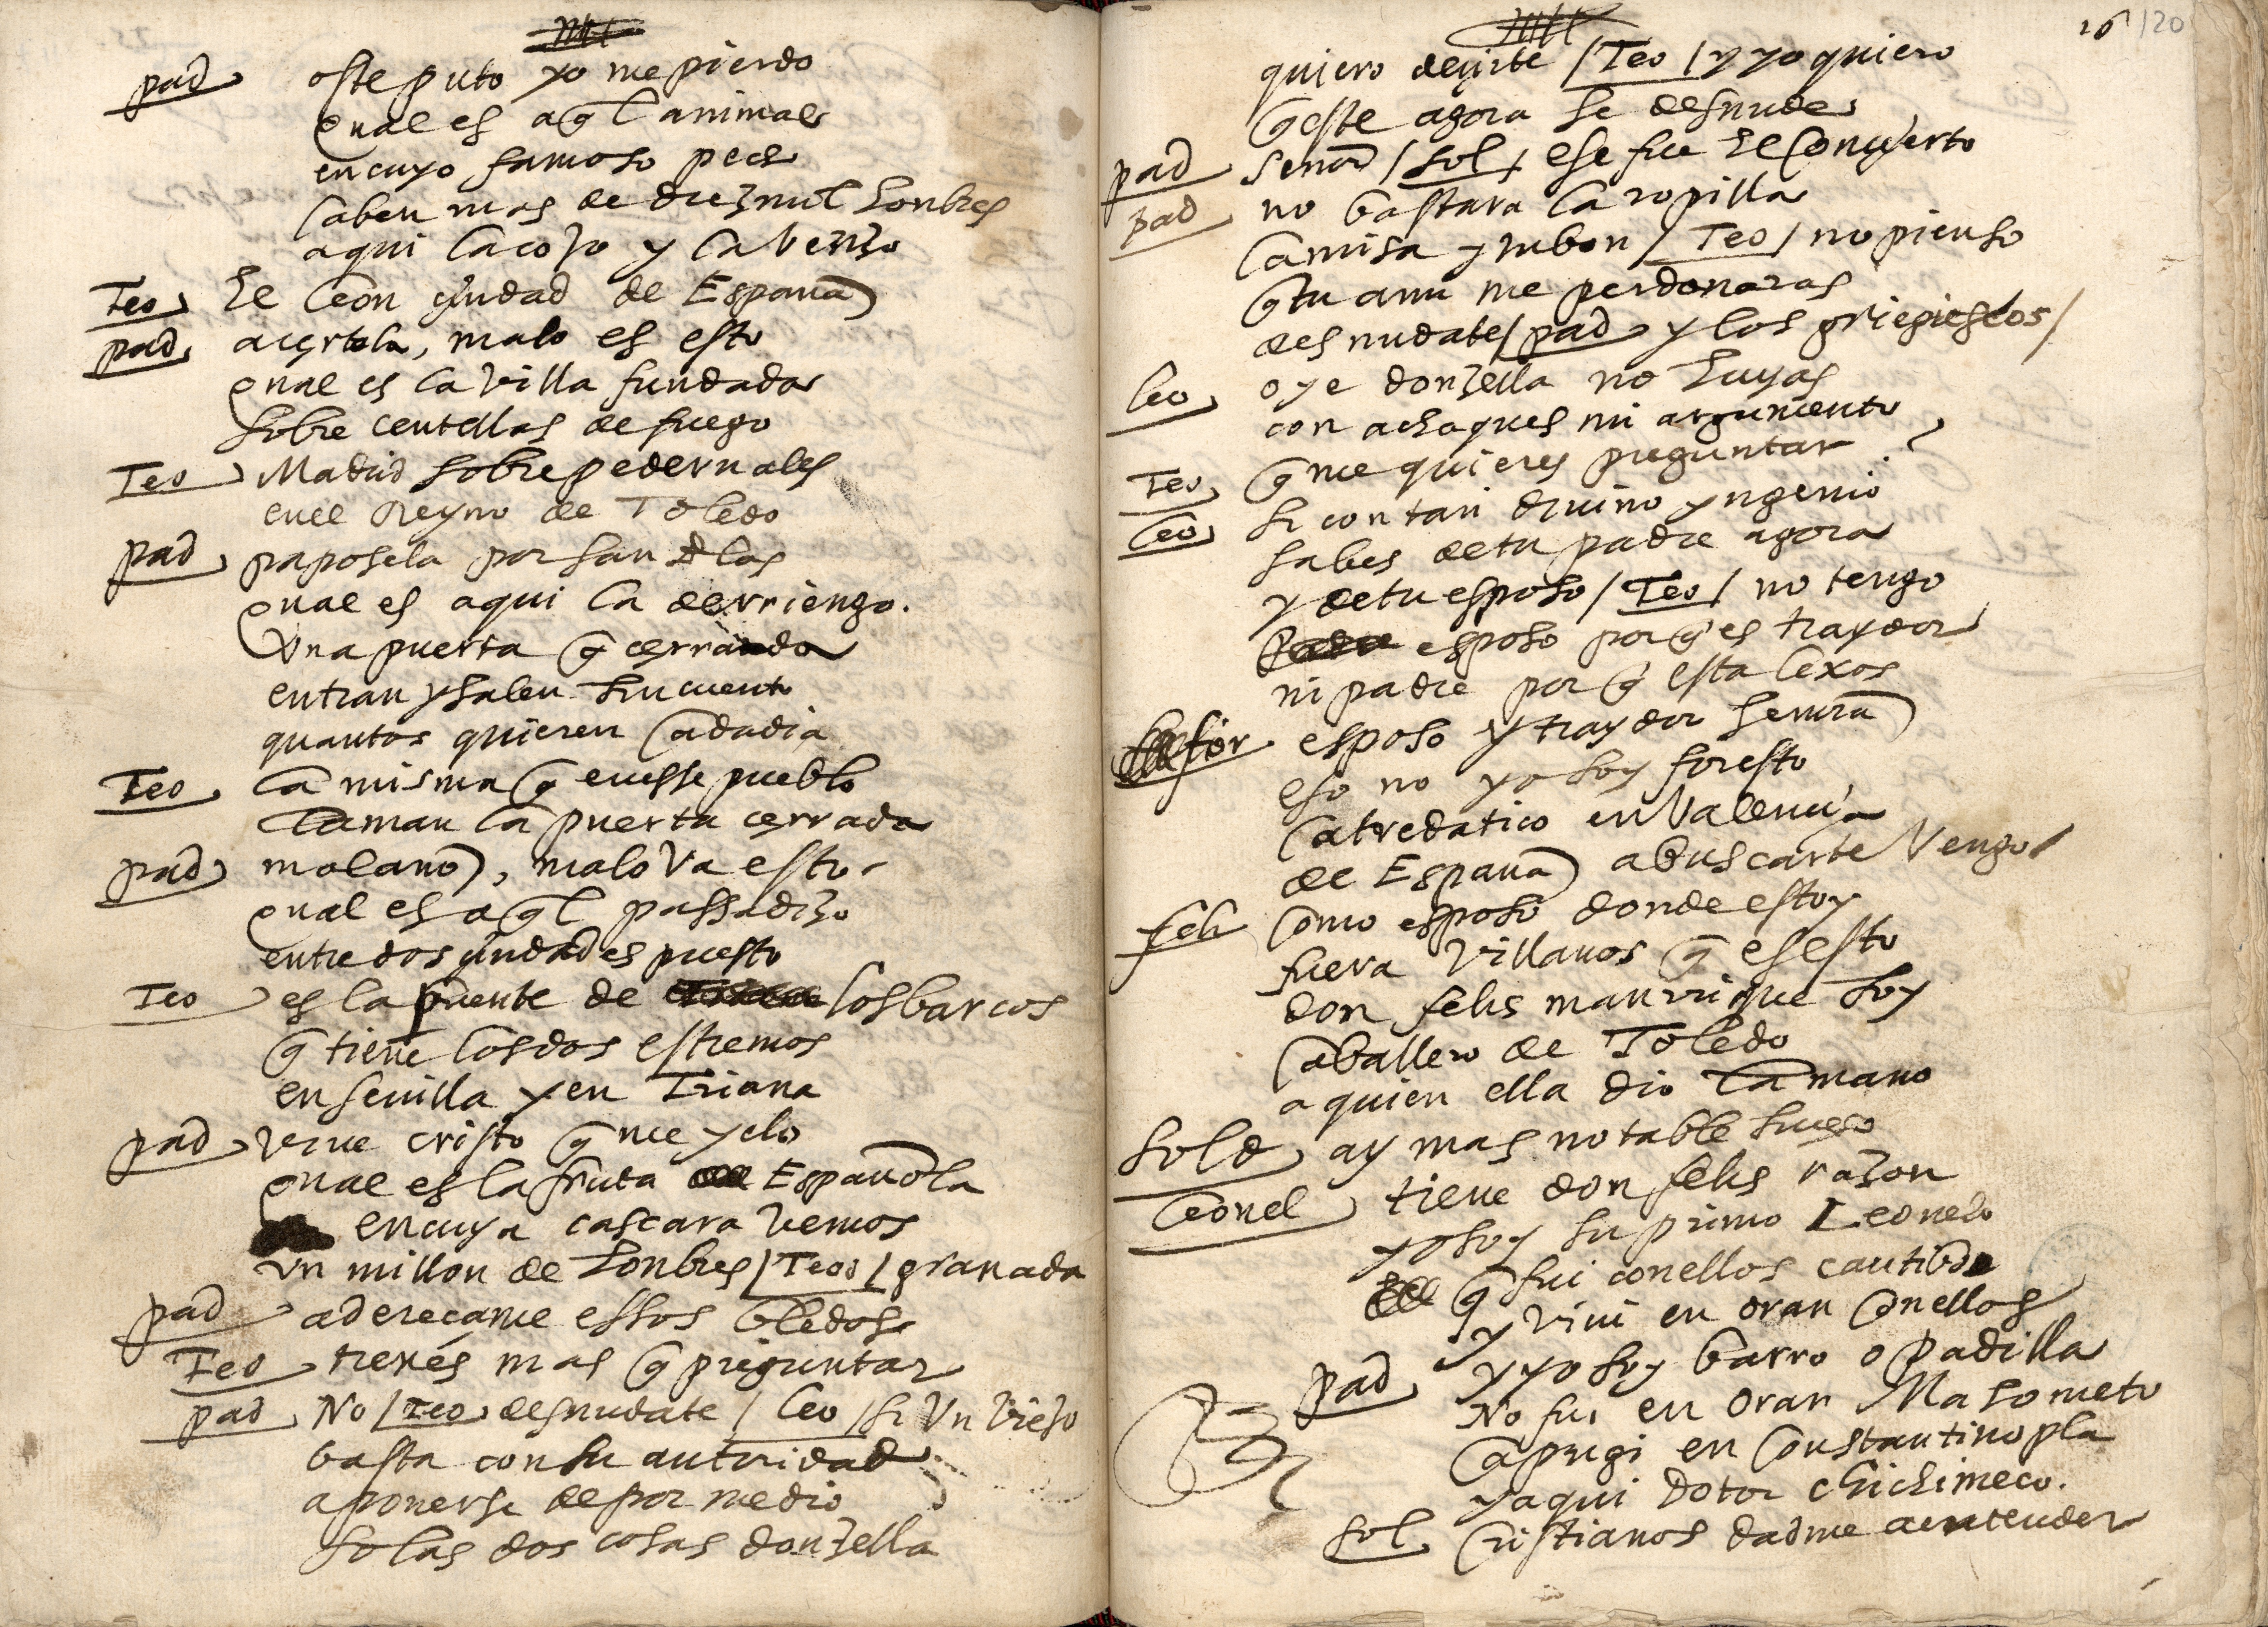 pad oste puto yo me pierdo
qual es aql animal
en cuyo famoso pecho
caben mas de diez mil honbres
aqui la cojo y la venzo
Teo El leon çiudad de España
pad açertola, malo es esto
qual es la villa fundada
sobre centellas de fuego
Teo Madrid sobre pedernales
en el Reyno de Toledo
pad paposela por san Blas
qual es aqui la derriengo.
Vna puerta q̃ çerrada
entran y salen sin cuento
quantos quieren cada dia
Teo la misma q̃ en esse pueblo
llaman la puerta çerrada
pad mal año, malo va esto
qual es aql passadizo
entre dos çiudades puesto
Teo es la puente de los barcos
q̃ tiene los dos estremos
en seuilla y en Triana
pad viue cristo q̃ me yelo
qual es la fruta Española
en cuya cascara vemos
vn millon de honbres / Teod / granada
pad adereçame essos bledos
Teo tienes mas q̃ preguntar
pad No / Teo desnudate / leo / si vn viejo
basta con su autoridad
a ponerse de por medio
solas dos cosas donzella
16 120
quiero deçirte / Teo / y yo quiero
q̃ este agora se desnude
pad señor / sol / ese fue el conçierto
pad no bastara la ropilla
camisa y jubon / Teo / no pienso
q̃ tu aun me perdonaras
desnudate / pad y los griegiescos /
leo oye donzella no huyas
con achaques mi argumento
Teo q̃ me quieres preguntar ?
leo si con tan diuino yngenio
sabes de tu padre agora
y de tu esposo / Teo / no tengo
esposo por q̃ es traydor
ni padre por q̃ esta lexos
for esposo y traydor señora
eso no yo soy foresto
catredatico en Valençia
de España a buscarte vengo
feli como esposo donde estoy
fuera villanos q̃ es esto
don felis manrrique soy
caballero de Toledo
a quien ella dio la mano
sold ay mas notable suceso
leonel tiene don felis razon
yo soy su primo Leonelo
q̃ fui con ellos cautibo
y viui en oran con ellos
pad y yo soy barro o padilla
No fui en oran Mahometo
capugi en Constantinopla
y aqui dotor chichimeco.
sol Cristianos dadme a entender